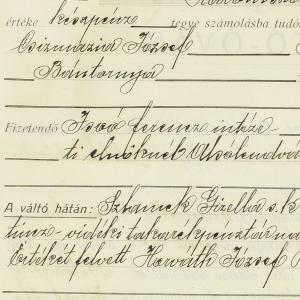 értéke készpénz tegye számolásba tudó
Csizmazia József
Bántornya
Fizetendő Ivó ferencz intéze-
ti elnöknél Alsólendva
A váltó hátán: Sztanek Gizella s.k
tincz-vidéki takarékpénztárna
Értékét felvett Horváth József